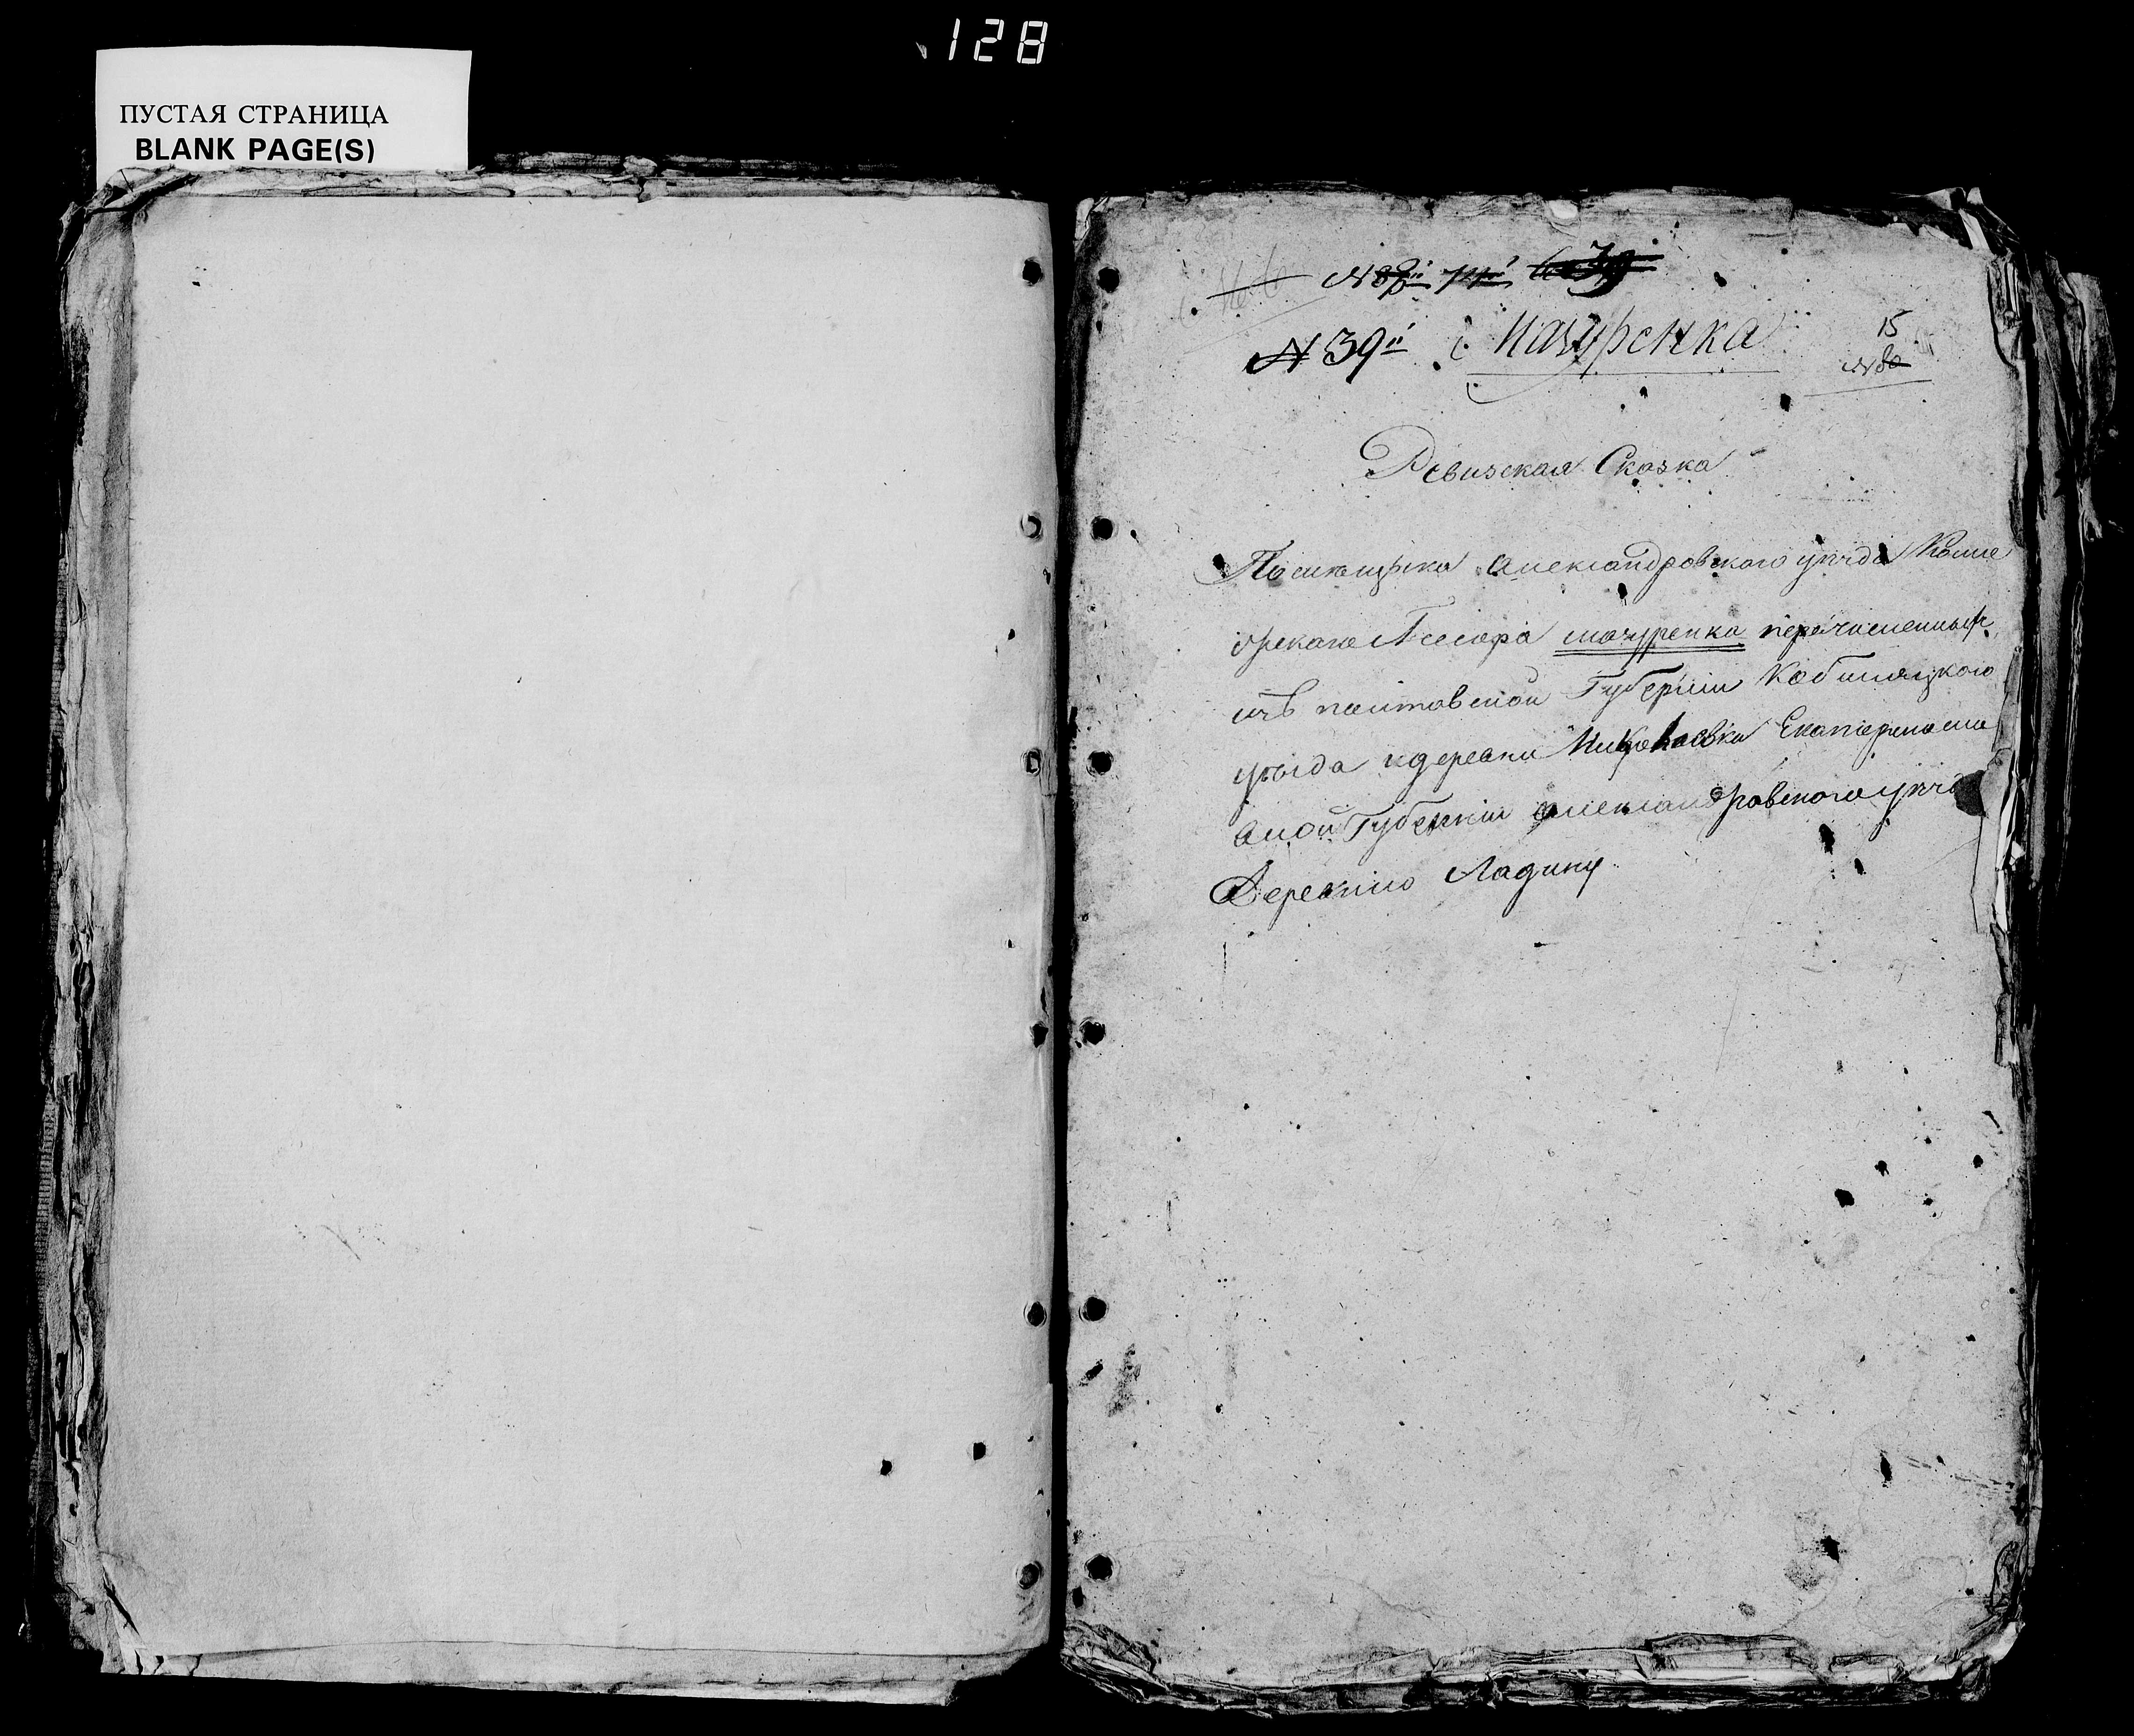 128
ПУСТАЯ СТРАНИЦА
BLANK PAGE(S)
№ 39й Мазуренка
15
№ 80
Ревизская Сказка
Помещика Александровского уезда Колле
жскаго Асесора мазуренки перечисленных
изъ полтавской Губернии Кобиляцкого
уезда из деревни Николаевки Екатериносла
вской Губернии александровского уезда
Деревню Ладину